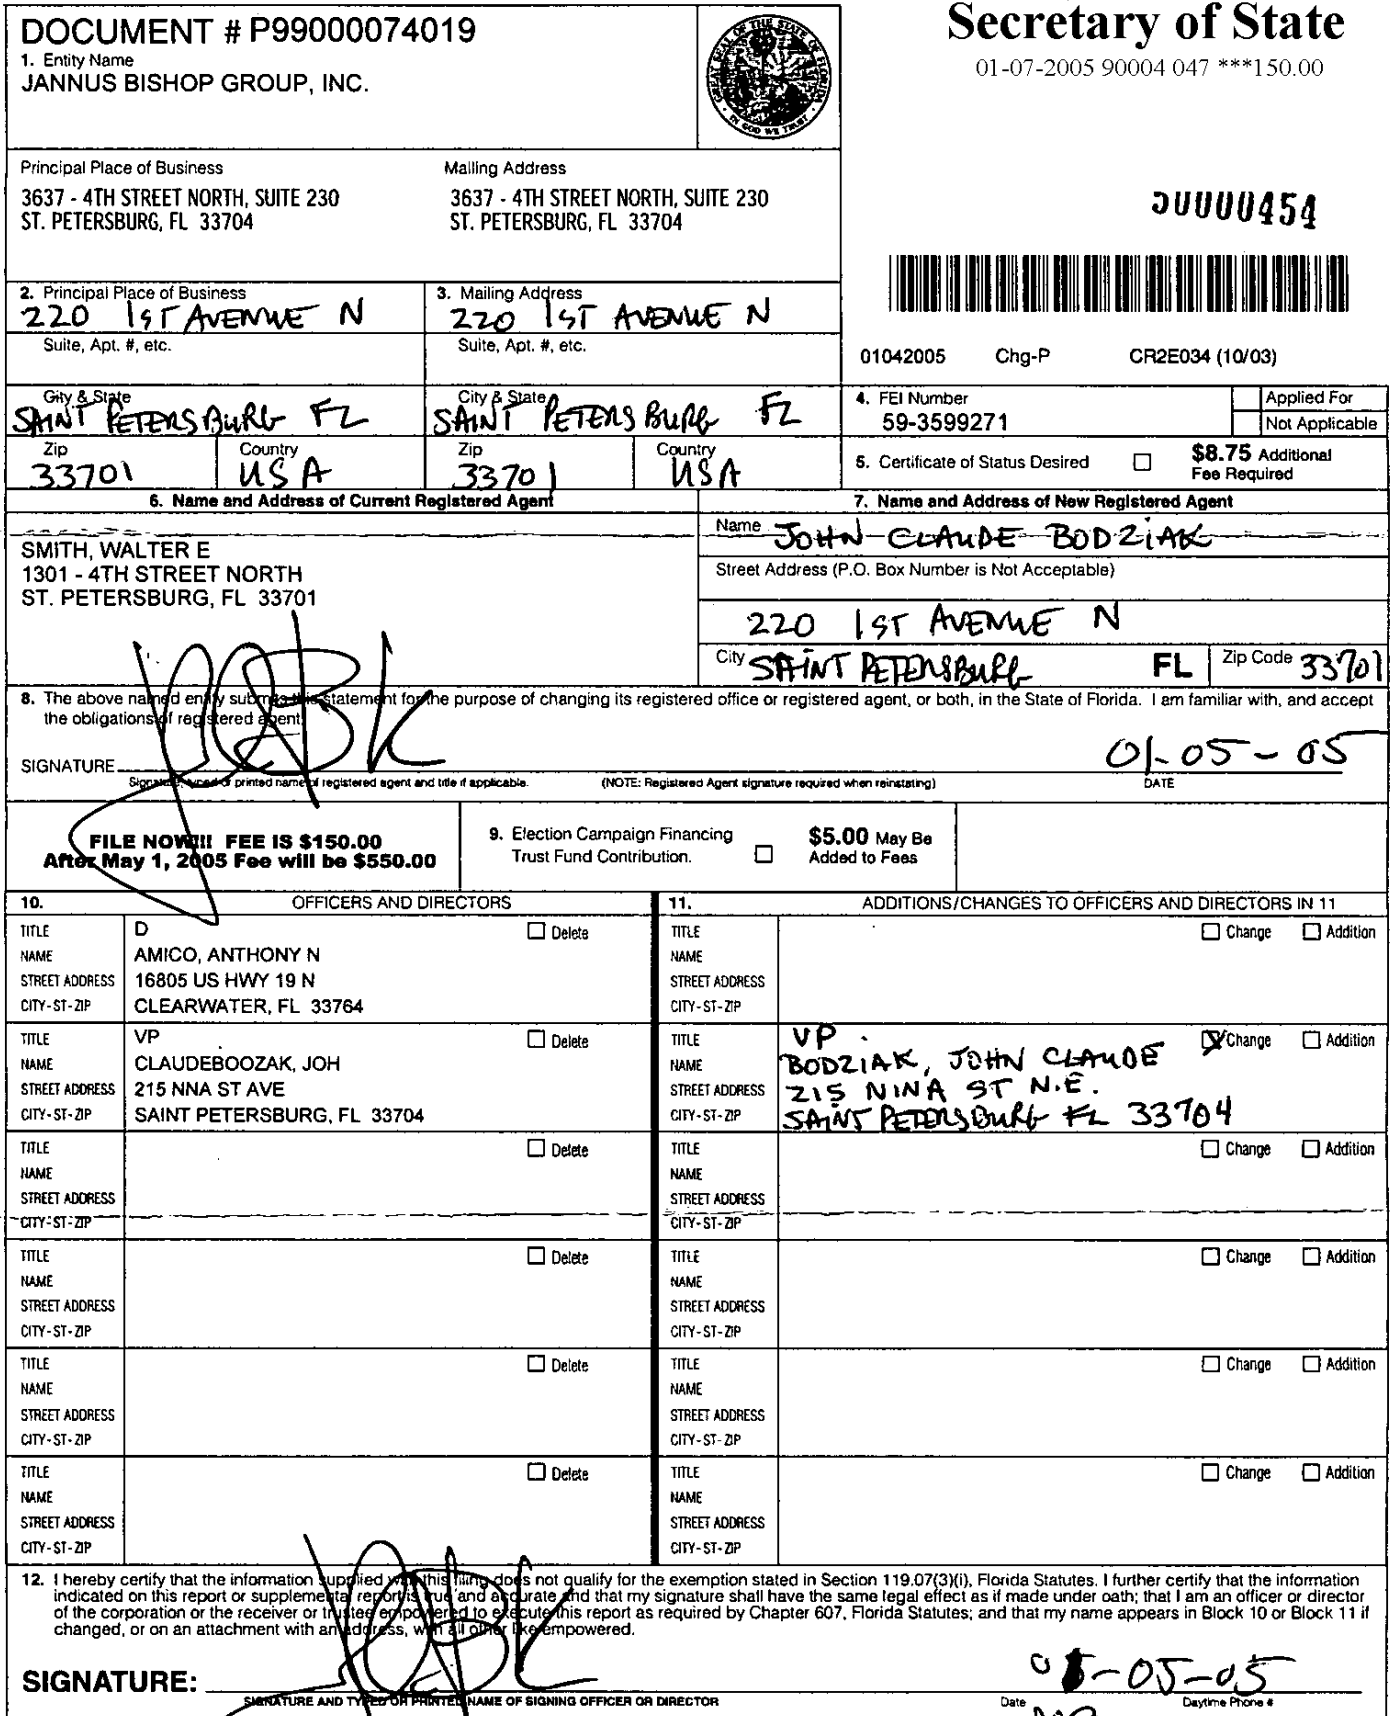 DOCUMENT # P99000074019
1. Entity Name
JANNUS BISHOP GROUP, INC.
GREAT SEAL OF THE STATE OF FLORIDA
IN GOD WE TRUST
Secretary of State
01-07-2005 90004 047 ***150.00
Principal Place of Business
3637 - 4TH STREET NORTH, SUITE 230
ST. PETERSBURG, FL 33704
Mailing Address
3637 - 4TH STREET NORTH, SUITE 230
ST. PETERSBURG, FL 33704
2. Principal Place of Business
220 1ST AVENUE N
Suite, Apt. #, etc.
3. Mailing Address
220 1ST AVENUE N
Suite, Apt. #, etc.
01042005 Chg-P CR2E034 (10/03)
City & State
SAINT PETERSBURG FL
City & State
SAINT PETERSBURG FL
Zip
33701
Country
USA
Zip
33701
Country
USA
4. FEI Number
59-3599271
Applied For
Not Applicable
5. Certificate of Status Desired
$8.75 Additional
Fee Required
6. Name and Address of Current Registered Agent
SMITH, WALTER E
1301 - 4TH STREET NORTH
ST. PETERSBURG, FL 33701
7. Name and Address of New Registered Agent
Name JOHN CLAUDE BODZIAK
Street Address (P.O. Box Number is Not Acceptable)
220 1ST AVENUE N
City SAINT PETERSBURG FL Zip Code 33701
8. The above named entity submits this statement for the purpose of changing its registered office or registered agent, or both, in the State of Florida. I am familiar with, and accept
the obligations of registered agent.
SIGNATURE
01-05-05
Signature, typed or printed name of registered agent and title if applicable. (NOTE: Registered Agent signature required when reinstating) DATE
FILE NOW!!! FEE IS $150.00
After May 1, 2005 Fee will be $550.00
9. Election Campaign Financing
Trust Fund Contribution.
$5.00 May Be
Added to Fees
10. OFFICERS AND DIRECTORS
11. ADDITIONS/CHANGES TO OFFICERS AND DIRECTORS IN 11
TITLE D Delete
NAME AMICO, ANTHONY N
STREET ADDRESS 16805 US HWY 19 N
CITY-ST-ZIP CLEARWATER, FL 33764
TITLE Change Addition
NAME
STREET ADDRESS
CITY-ST-ZIP
TITLE VP Delete
NAME CLAUDEBOOZAK, JOH
STREET ADDRESS 215 NNA ST AVE
CITY-ST-ZIP SAINT PETERSBURG, FL 33704
TITLE VP. Change Addition
NAME BODZIAK, JOHN CLAUDE
STREET ADDRESS 215 NINA ST N.E.
CITY-ST-ZIP SAINT PETERSBURG FL 33704
TITLE Delete
NAME
STREET ADDRESS
CITY-ST-ZIP
TITLE Change Addition
NAME
STREET ADDRESS
CITY-ST-ZIP
TITLE Delete
NAME
STREET ADDRESS
CITY-ST-ZIP
TITLE Change Addition
NAME
STREET ADDRESS
CITY-ST-ZIP
TITLE Delete
NAME
STREET ADDRESS
CITY-ST-ZIP
TITLE Change Addition
NAME
STREET ADDRESS
CITY-ST-ZIP
TITLE Delete
NAME
STREET ADDRESS
CITY-ST-ZIP
TITLE Change Addition
NAME
STREET ADDRESS
CITY-ST-ZIP
12. I hereby certify that the information supplied with this filing does not qualify for the exemption stated in Section 119.07(3)(i), Florida Statutes. I further certify that the information
indicated on this report or supplemental report is true and accurate and that my signature shall have the same legal effect as if made under oath; that I am an officer or director
of the corporation or the receiver or trustee empowered to execute this report as required by Chapter 607, Florida Statutes; and that my name appears in Block 10 or Block 11 if
changed, or on an attachment with an address, with all other like empowered.
SIGNATURE:
-05-05
SIGNATURE AND TYPED OR PRINTED NAME OF SIGNING OFFICER OR DIRECTOR Date Daytime Phone #